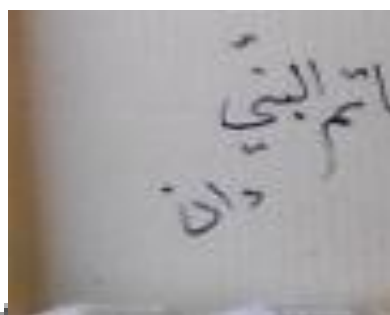 اتم البنيّ
دان